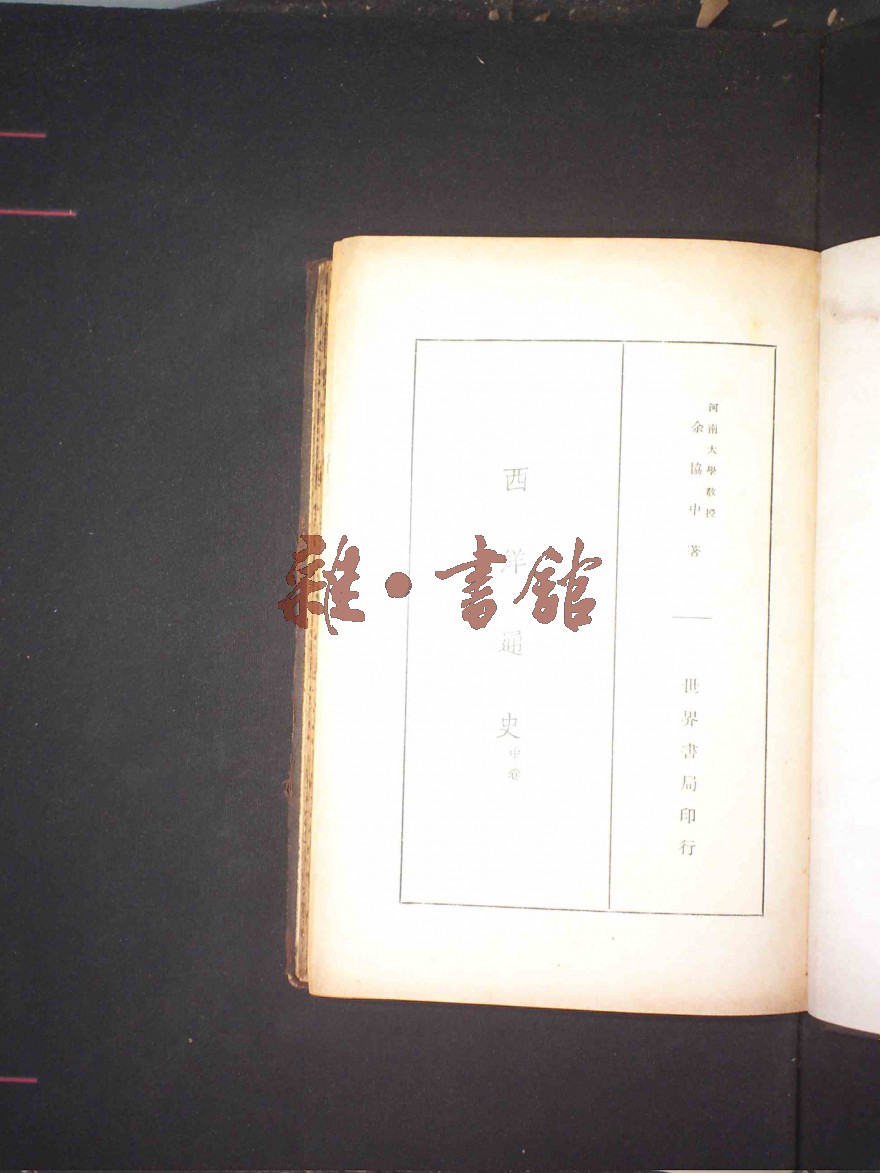 河南大學教授
余協中 著
世界書局印行
西洋通史
中卷
雜·書館